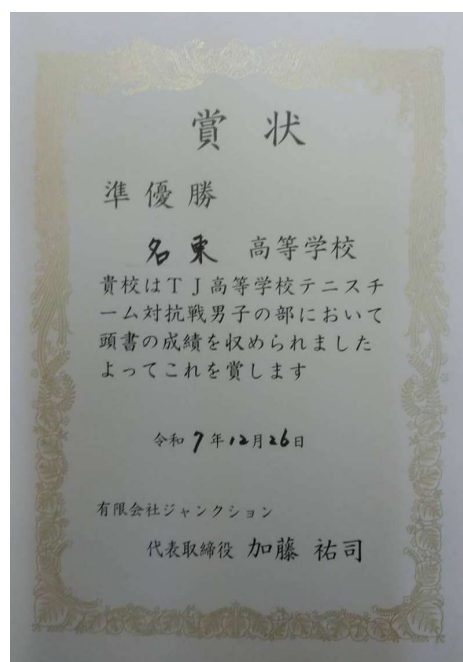 賞状
準優勝
名東 高等学校
貴校はTJ高等学校テニスチ
ーム対抗戦男子の部において
頭書の成績を収められました
よってこれを賞します
令和7年12月26日
有限会社ジャンクション
代表取締役 加藤 祐司